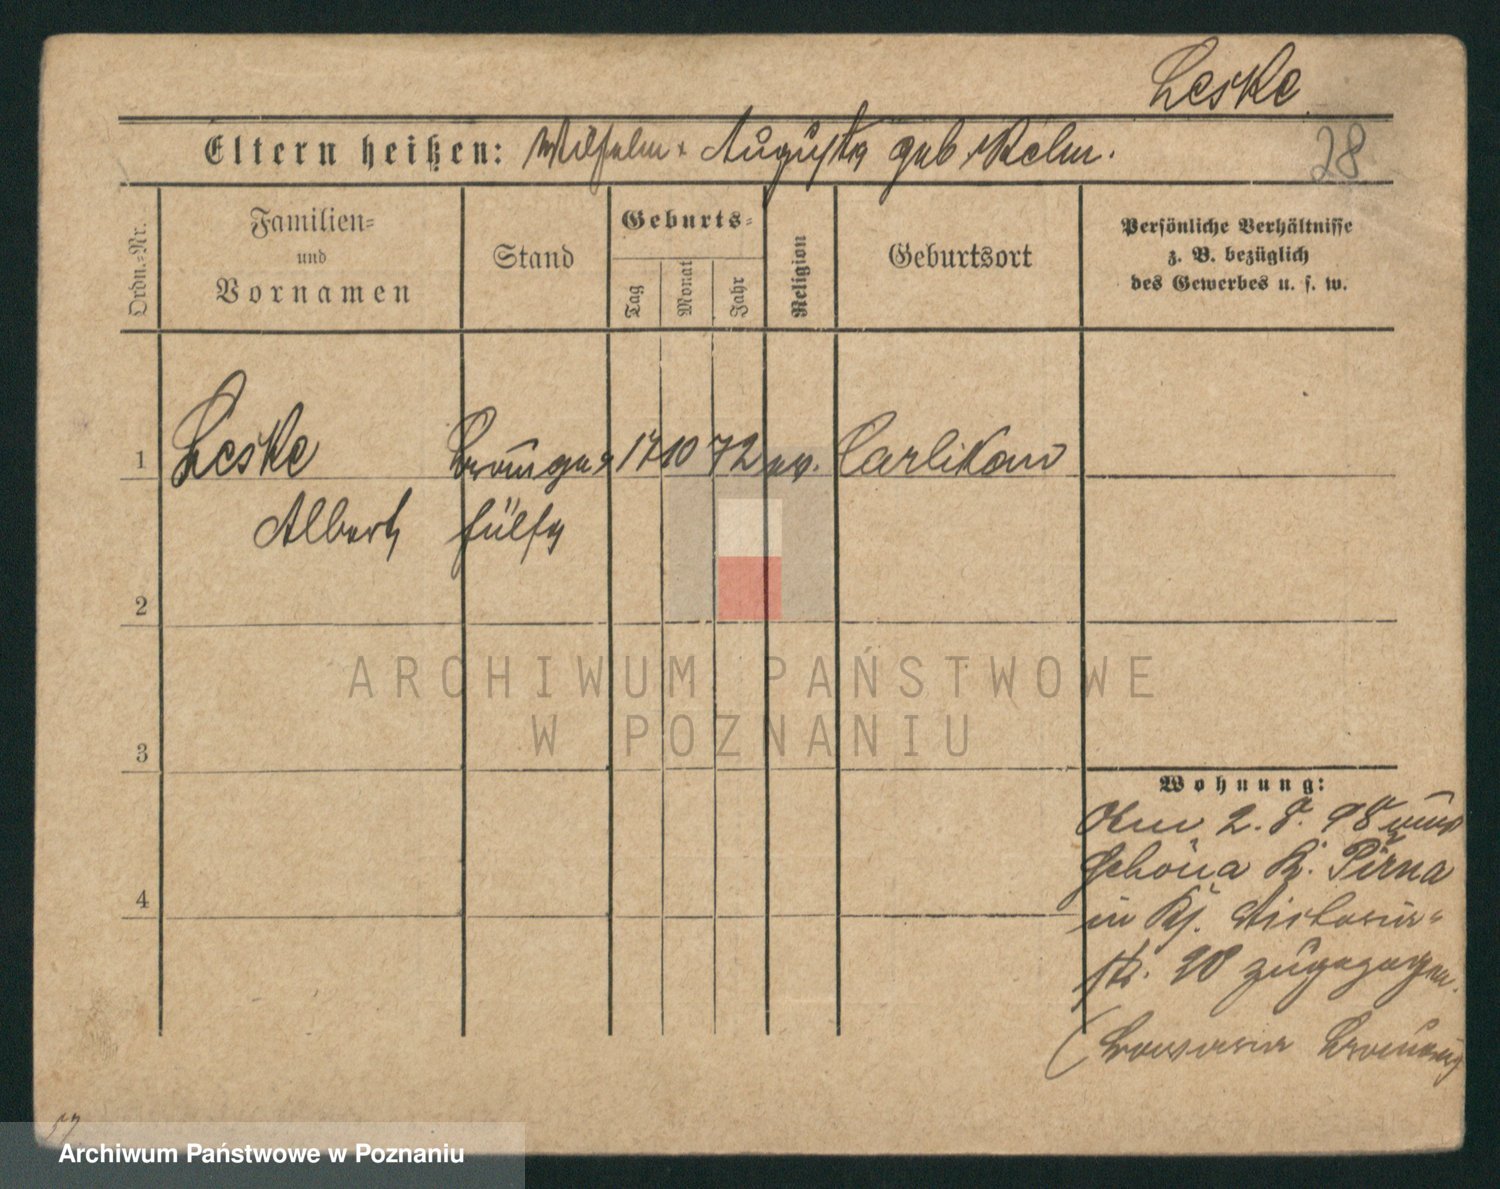 Leske
28
Eltern heißen: Wilhelm + Auguste geb. Rehm.
Ordn.-Nr.
Familien-
und
Vornamen
Stand
Geburts-
Tag
Monat
Jahr
Religion
Geburtsort
Persönliche Verhältnisse
z. B. bezüglich
des Gewerbes u. s. w.
1 Leske Brauge- 17 10 72 ev. Carlikau
Albert hülfe
2
3
4
Wohnung:
Am 2. 8. 98 von
Schöna K. Pirna
in Kj. Victoria-
str. 20 zugezogen.
(Brauerei
57
ARCHIWUM PAŃSTWOWE
W POZNANIU
Archiwum Państwowe w Poznaniu